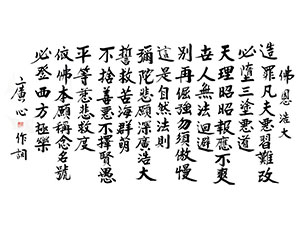 佛恩浩大
造罪凡夫惡習難改
必墮三塗惡道
天理昭昭報應不爽
世人無法迴避
別再倔強勿須傲慢
這是自然法則
彌陀悲願深廣浩大
誓救苦海群萌
不捨善惡不擇賢愚
平等慈悲救度
依佛本願稱念名號
必登西方極樂
廣心作詞